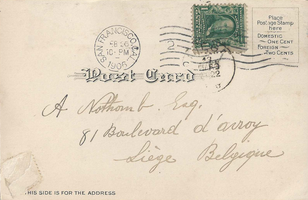 SAN FRANCISCO, CAL.
FEB 16
10-PM
1905
2
Place
Postage Stamp
here
DOMESTIC
ONE CENT
FOREIGN
TWO CENTS
Post Card
A Nothomb Esq.
81 Boulevard d'avroy
Liège Belgique
THIS SIDE IS FOR THE ADDRESS